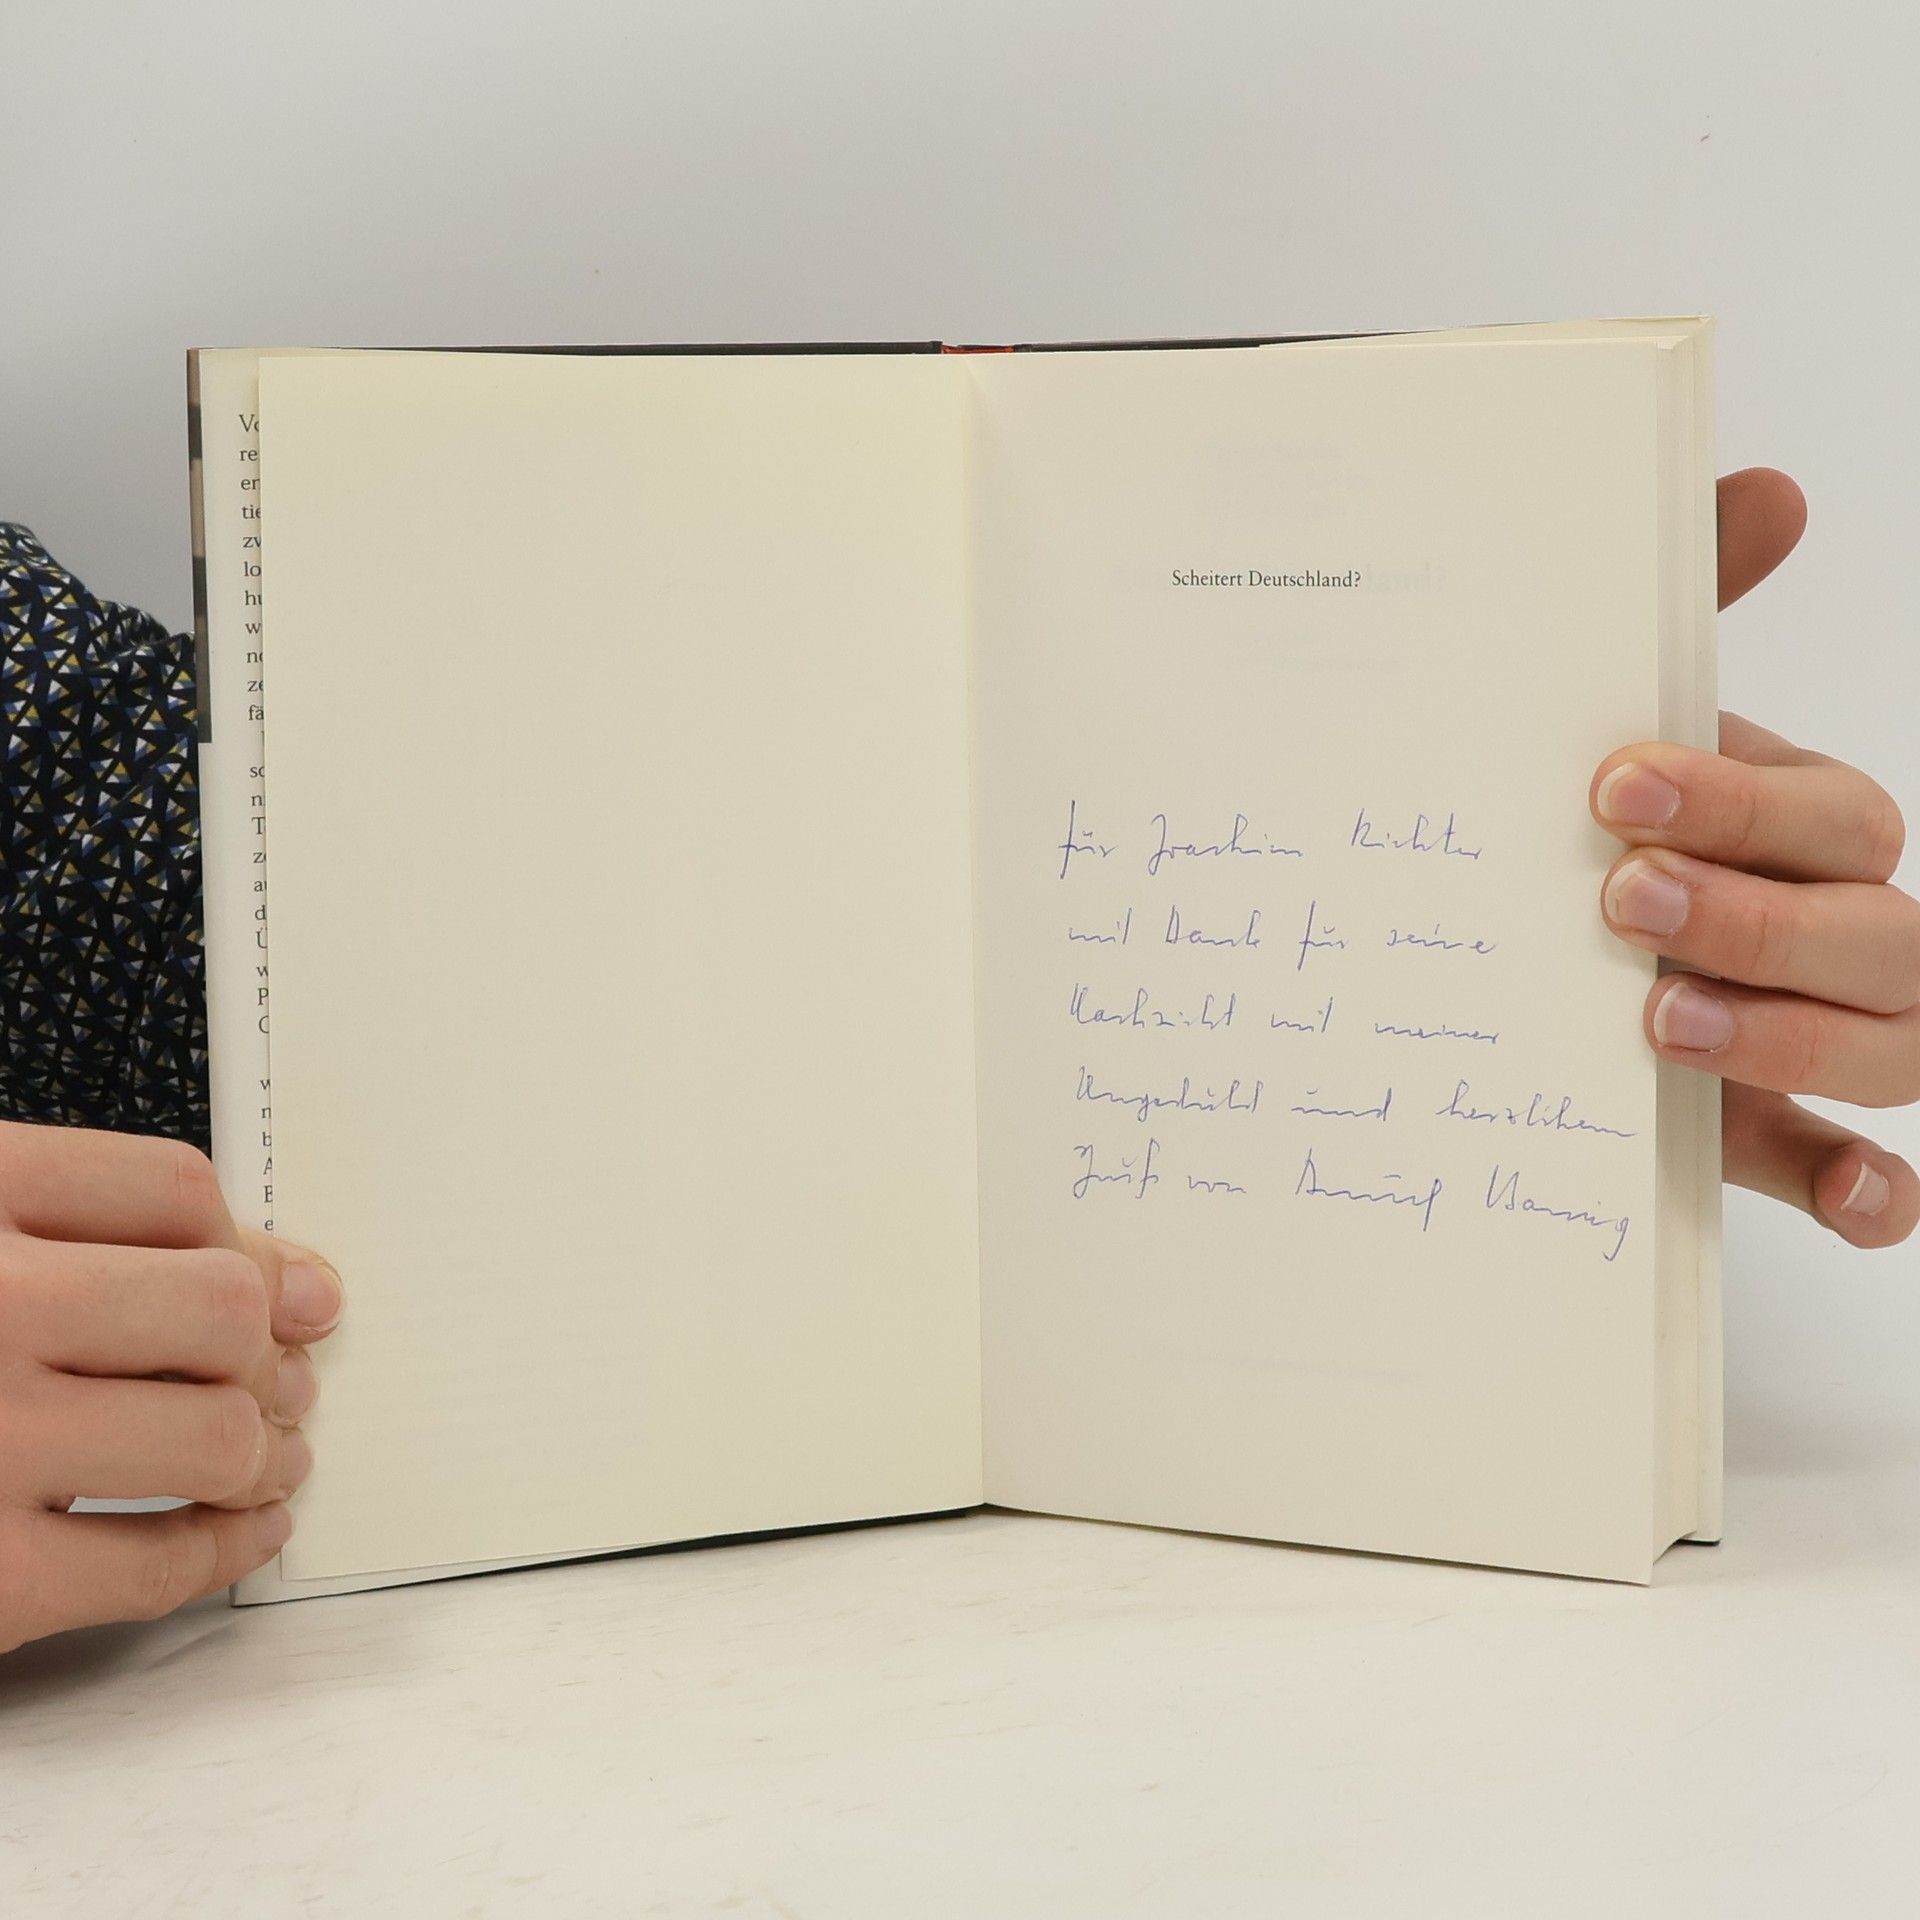 Vo
re
en
tie
zw
lo
hu
w
ne
ze
fä
sc
ni
Te
ze
au
d
Ü
w
P
w
n
b
A
E
e
Scheitert Deutschland?
für Joachim Richter
mit Dank für seine
Nachsicht mit meiner
Ungeduld und herzlichem
Gruß von Arnulf Baring